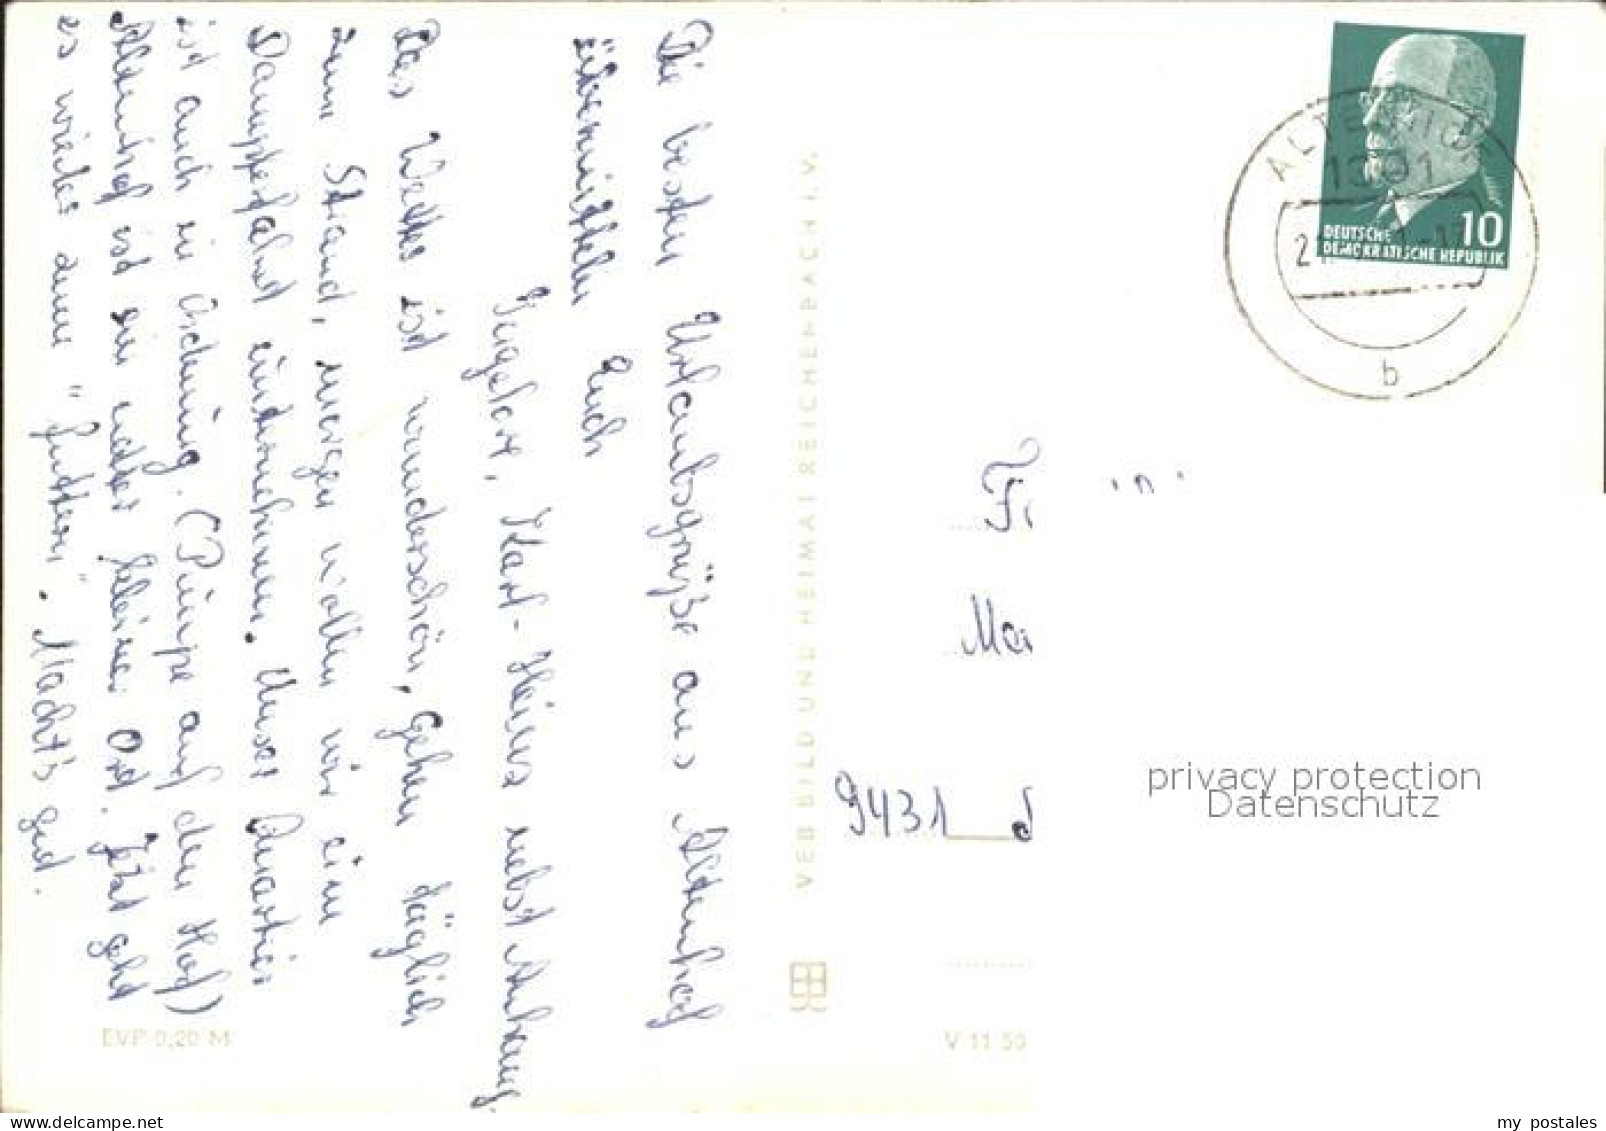 Die besten Urlaubsgrüße aus Altenhof
übermitteln Euch
Ingelore, Karl-Heinz nebst Anhang
Das Wetter ist wunderschön, gehen täglich
zum Strand, morgen wollen wir eine
Dampferfahrt unternehmen. Unser Quartier
ist auch in Ordnung. (Pumpe auf dem Hof)
Altenhof ist ein netter kleiner Ort. Jetzt geht
es wieder zum "Futtern". Macht's gut.
EVP 0,20 M
VEB BILD UND HEIMAT REICHENBACH I. V.
V 11 50
ALTENHOF
1301
b
10
DEUTSCHE
DEMOKRATISCHE REPUBLIK
9431
privacy protection
Datenschutz
delcampe.net
my_postales